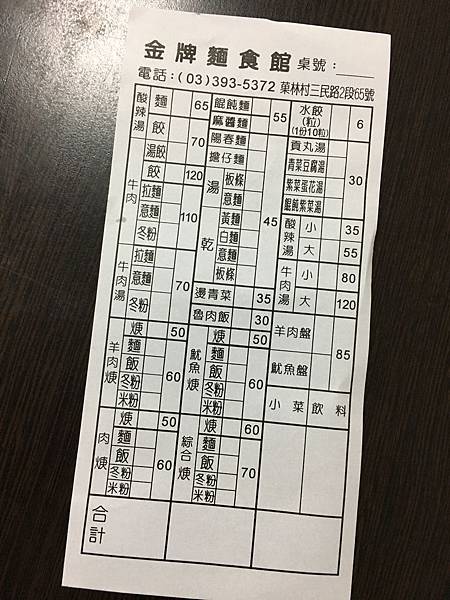 金牌麵食館 桌號：
電話：(03)393-5372 菓林村三民路2段65號
酸辣湯 麵 65
餃 70
湯餃
牛肉 餃 120
拉麵 110
意麵
冬粉
牛肉湯 拉麵 70
意麵
冬粉
羊肉焿 焿 50
麵 60
飯
冬粉
米粉
肉焿 焿 50
麵 60
飯
冬粉
米粉
合計
餛飩麵 55
麻醬麵
陽春麵 45
擔仔麵
湯 板條
意麵
黃麵
乾 白麵
意麵
板條
燙青菜 35
魯肉飯 30
魷魚焿 焿 50
麵 60
飯
冬粉
米粉
綜合焿 焿 60
麵 70
飯
冬粉
米粉
水餃 6
(粒)
(1份10粒)
貢丸湯 30
青菜豆腐湯
紫菜蛋花湯
餛飩紫菜湯
酸辣湯 小 35
大 55
牛肉湯 小 80
大 120
羊肉盤 85
魷魚盤
小菜飲料